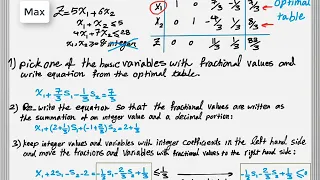 Max
Z=5x₁+6x₂
x₁+x₂≤5
4x₁+7x₂≤28
x₁,x₂≥0 integer
optimal
table
1) pick one of the basic variables with fractional values and
write equation from the optimal table.
x₁+7/3 s₁-1/3 s₂=7/3
2) Re-write the equation so that the fractional values are written as
the summation of an integer value and a decimal portion:
x₁+(2+1/3)s₁+(-1+2/3)s₂=2+1/3
3) keep integer values and variables with integer coefficients in the left hand side
and move the fractions and variables with fractional values to the right hand side:
x₁+2s₁-s₂-2=-1/3 s₁-2/3 s₂+1/3